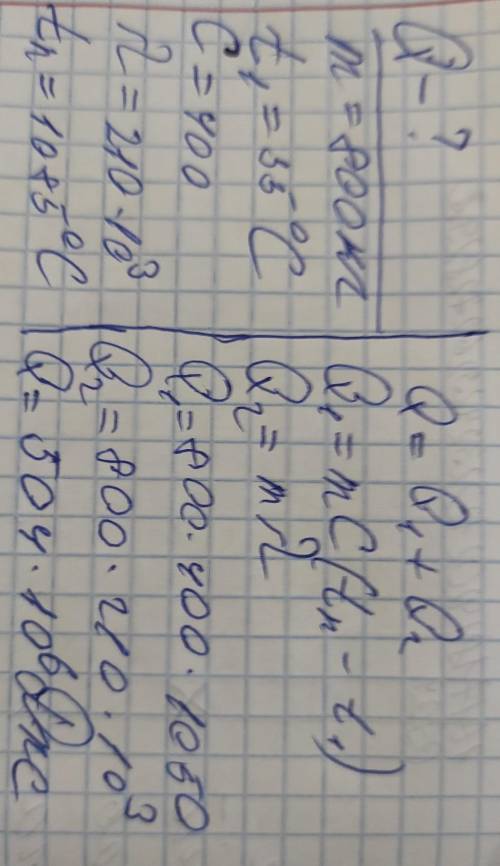 Q-?
m = 800 кг
t₁ = 35 °C
C = 400
λ = 210·10³
tₙ = 1085 °C
Q = Q₁ + Q₂
Q₁ = mC(tₙ - t₁)
Q₂ = mλ
Q₁ = 800·400·1050
Q₂ = 800·210·10³
Q = 504·10⁶ Дж